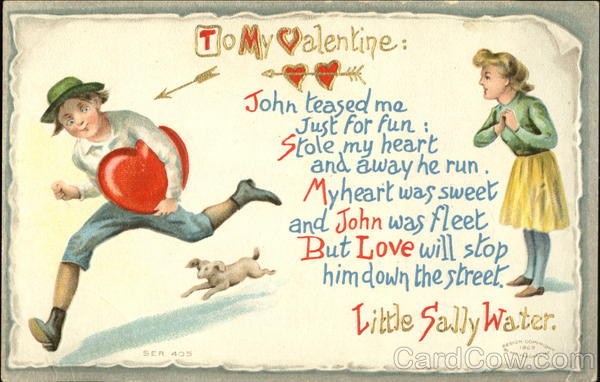 To My Valentine:
John teased me
Just for fun:
Stole my heart
and away he run.
My heart was sweet
and John was fleet
But Love will stop
him down the street.
Little Sally Water.
SER. 405
DESIGN COPYRIGHT
1909
CardCow.com